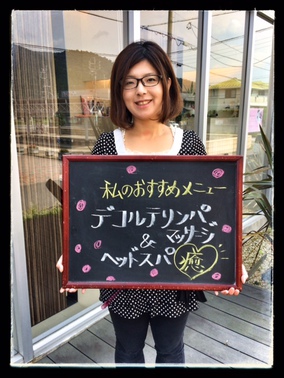 私のおすすめメニュー
デコルテリンパ
マッサージ
&
ヘッドスパ
癒